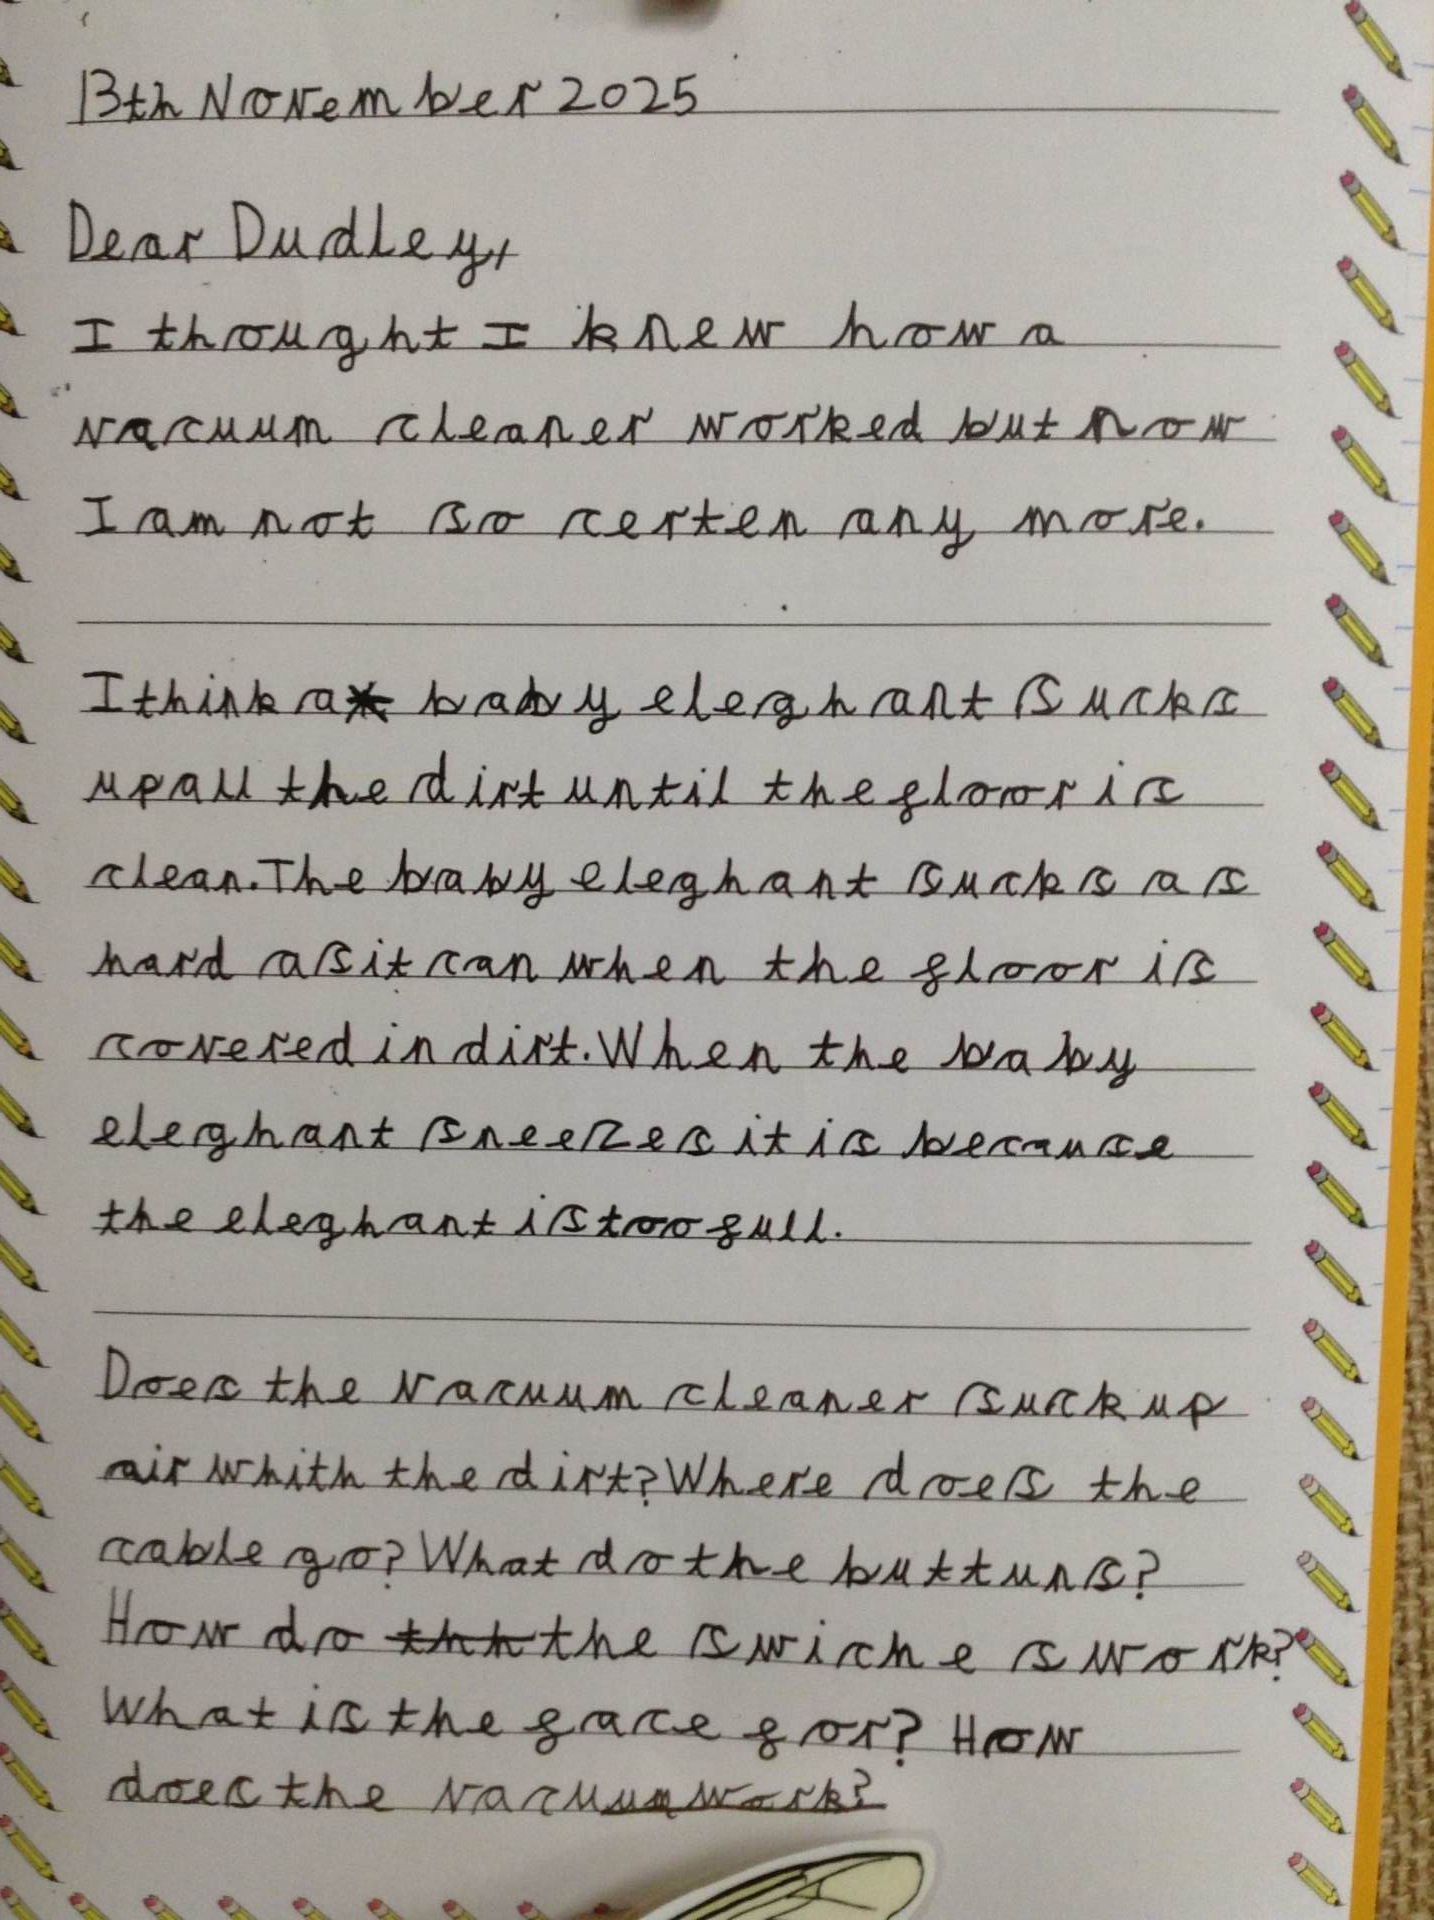 13th November 2025
Dear Dudley,
I thought I knew how a
vacuum cleaner worked but now
I am not so certen any more.
I think a baby eleghant sucks
up all the dirt until the floor is
clean. The baby eleghant sucks as
hard as it can when the floor is
covered in dirt. When the baby
eleghant sneezes it is because
the eleghant is too full.
Does the vacuum cleaner suck up
air whith the dirt? Where does the
cable go? What do the buttuns?
How do the swiches work?
What is the face for? How
does the vacuum work?